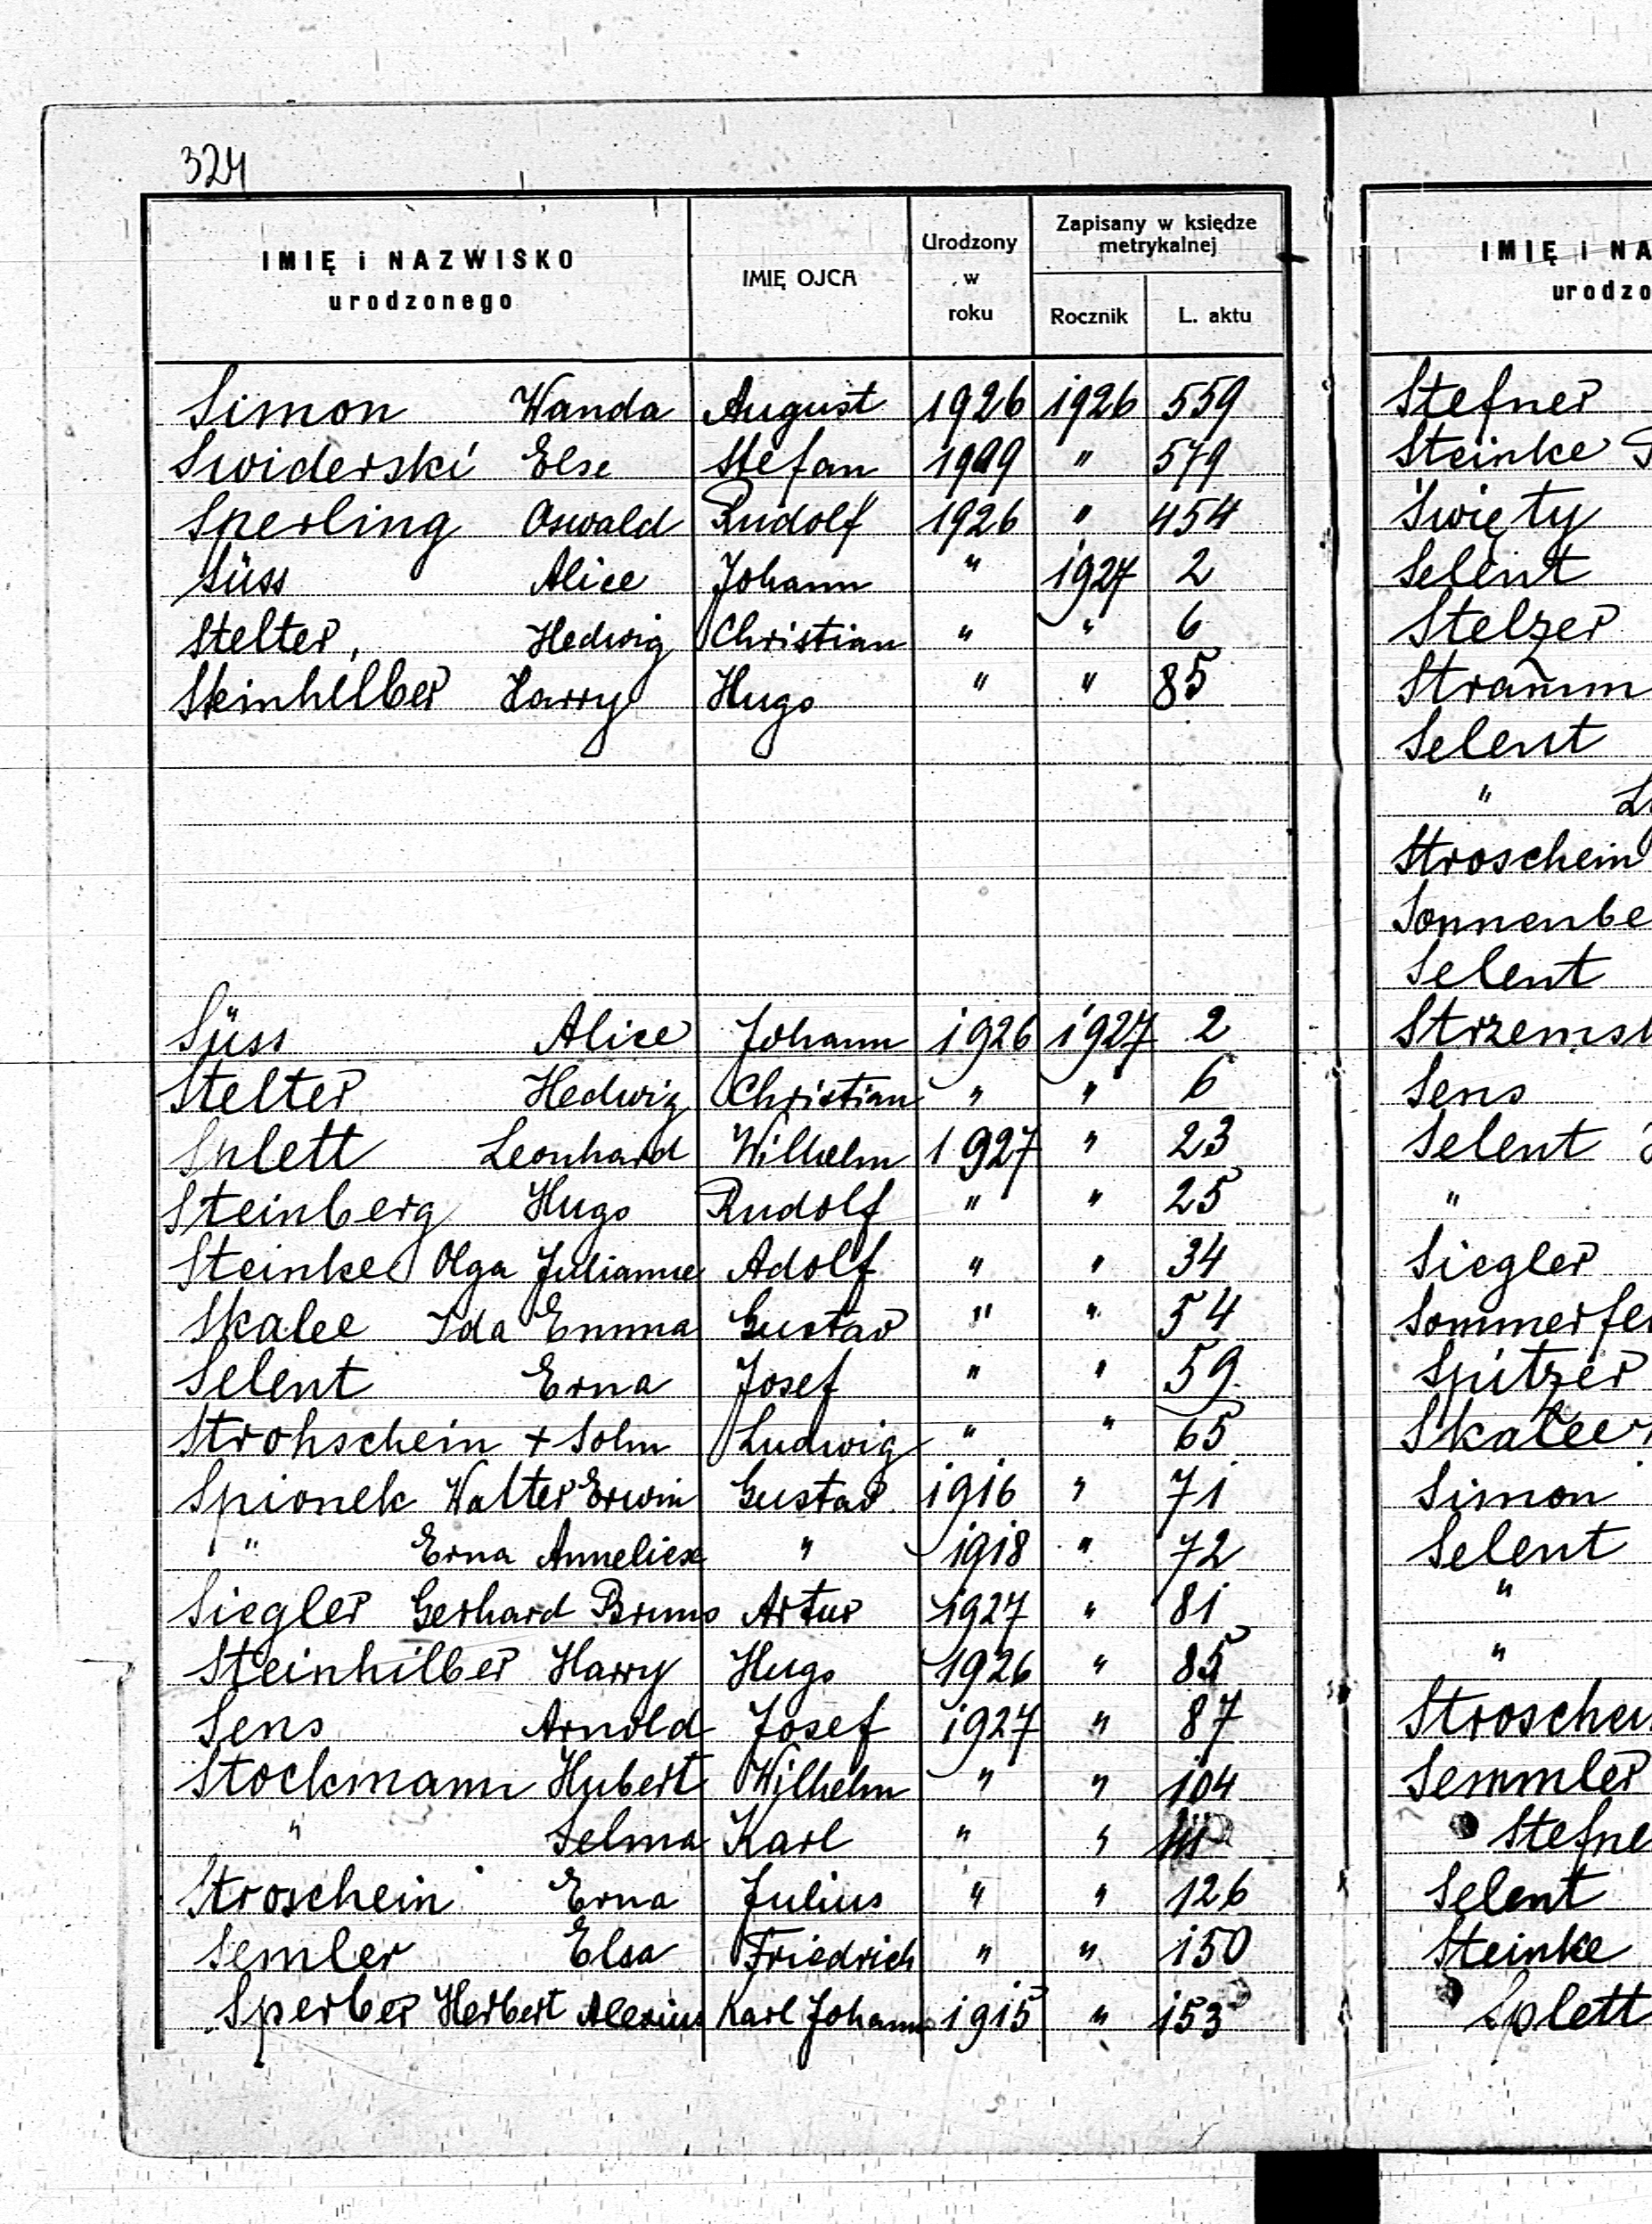 324
IMIĘ i NAZWISKO urodzonego IMIĘ OJCA Urodzony w roku Zapisany w księdze metrykalnej Rocznik L. aktu
Simon Wanda August 1926 1926 559
Swiderski Else Stefan 1909 " 579
Sperling Oswald Rudolf 1926 " 454
Süss Alice Johann " 1927 2
Stelter, Hedwig Christian " " 6
Steinhilber Harry Hugo " " 85
Süss Alice Johann 1926 1927 2
Stelter Hedwig Christian " " 6
Splett Leonhard Wilhelm 1927 " 23
Steinberg Hugo Rudolf " " 25
Steinke Olga Julianne Adolf " " 34
Skalee Ida Emma Gustav " " 54
Selent Erna Josef " " 59
Strohschein + Sohn Ludwig " " 65
Spionek Walter Erwin Gustav 1916 " 71
" Erna Anneliese " 1918 " 72
Siegler Gerhard Bruno Artur 1927 " 81
Steinhilber Harry Hugo 1926 " 85
Sens Arnold Josef 1927 " 87
Stockmann Hubert Wilhelm " " 104
" Selma Karl " "
Stroschein Erna Julius " " 126
Semler Elsa Friedrich " " 150
Sperber Herbert Alexius Karl Johann 1915 " 153
IMIĘ i NA
urodzo
Stefner
Steinke
Święty
Selent
Stelzer
Stramm
Selent
"
Stroschein
Sonnenbe
Selent
Strzemsk
Sens
Selent
"
Siegler
Sommerfel
Spitzer
Skalee
Simon
Selent
"
"
Stroschei
Semmler
Stefne
Selent
Steinke
Splett